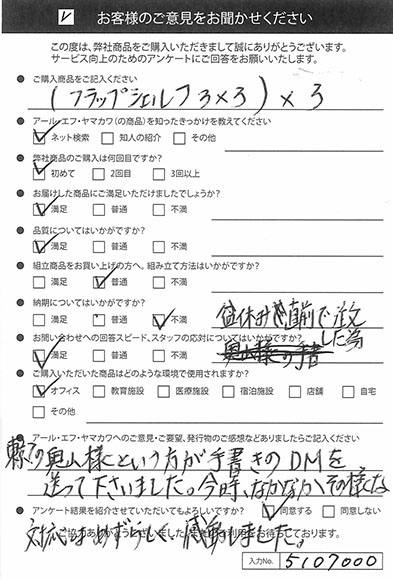 お客様のご意見をお聞かせください
この度は、弊社商品をご購入いただきまして誠にありがとうございます。
サービス向上のためのアンケートにご回答をお願いいたします。
● ご購入商品をご記入ください
(フラップシェルフ3×3)×3
● アール・エフ・ヤマカワ(の商品)を知ったきっかけを教えてください
ネット検索 知人の紹介 その他
● 弊社商品のご購入は何回目ですか?
初めて 2回目 3回以上
● お届けした商品にご満足いただけましたでしょうか?
満足 普通 不満
● 品質についてはいかがですか?
満足 普通 不満
● 組立商品をお買い上げの方へ。組み立て方法はいかがですか?
満足 普通 不満
● 納期についてはいかがですか?
満足 普通 不満 盆休み直前で注文
した為
● お問い合わせへの回答スピード、スタッフの応対についてはいかがですか?
満足 普通 不満
● ご購入いただいた商品はどのような環境で使用されますか?
オフィス 教育施設 医療施設 宿泊施設 店舗 自宅
その他
アール・エフ・ヤマカワへのご意見・ご要望、発行物のご感想などありましたらご記入ください
奥山様という方が手書きのDMを
送って下さいました。今時、なかなかその様な
● アンケート結果を紹介させていただいてもよろしいですか? 同意する 同意しない
対応はめずらしく、感動しました。
入力No. 5107000